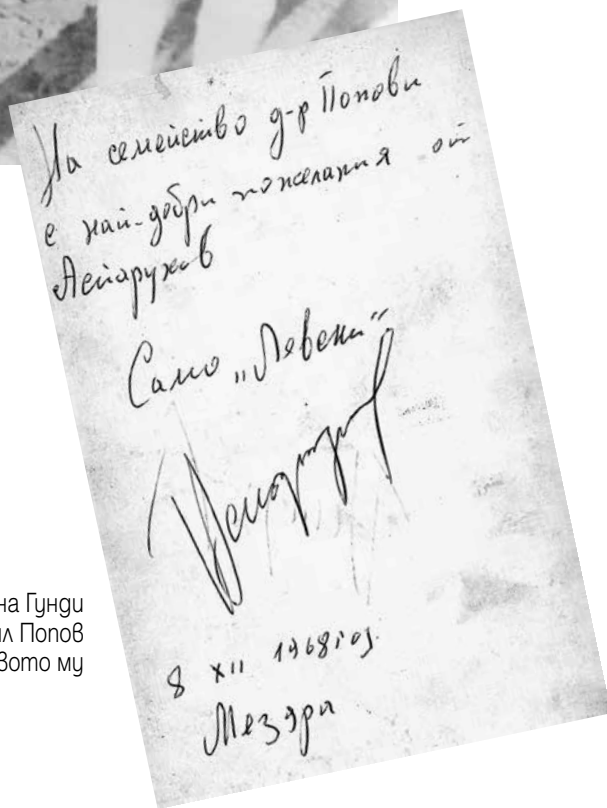 На семейство д-р Попови
с най-добри пожелания от
Аспарухов
Само „Левски“
8 XII 1968 год.
Мездра
на Гунди
ил Попов
вото му